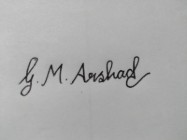 G. M. Arshad